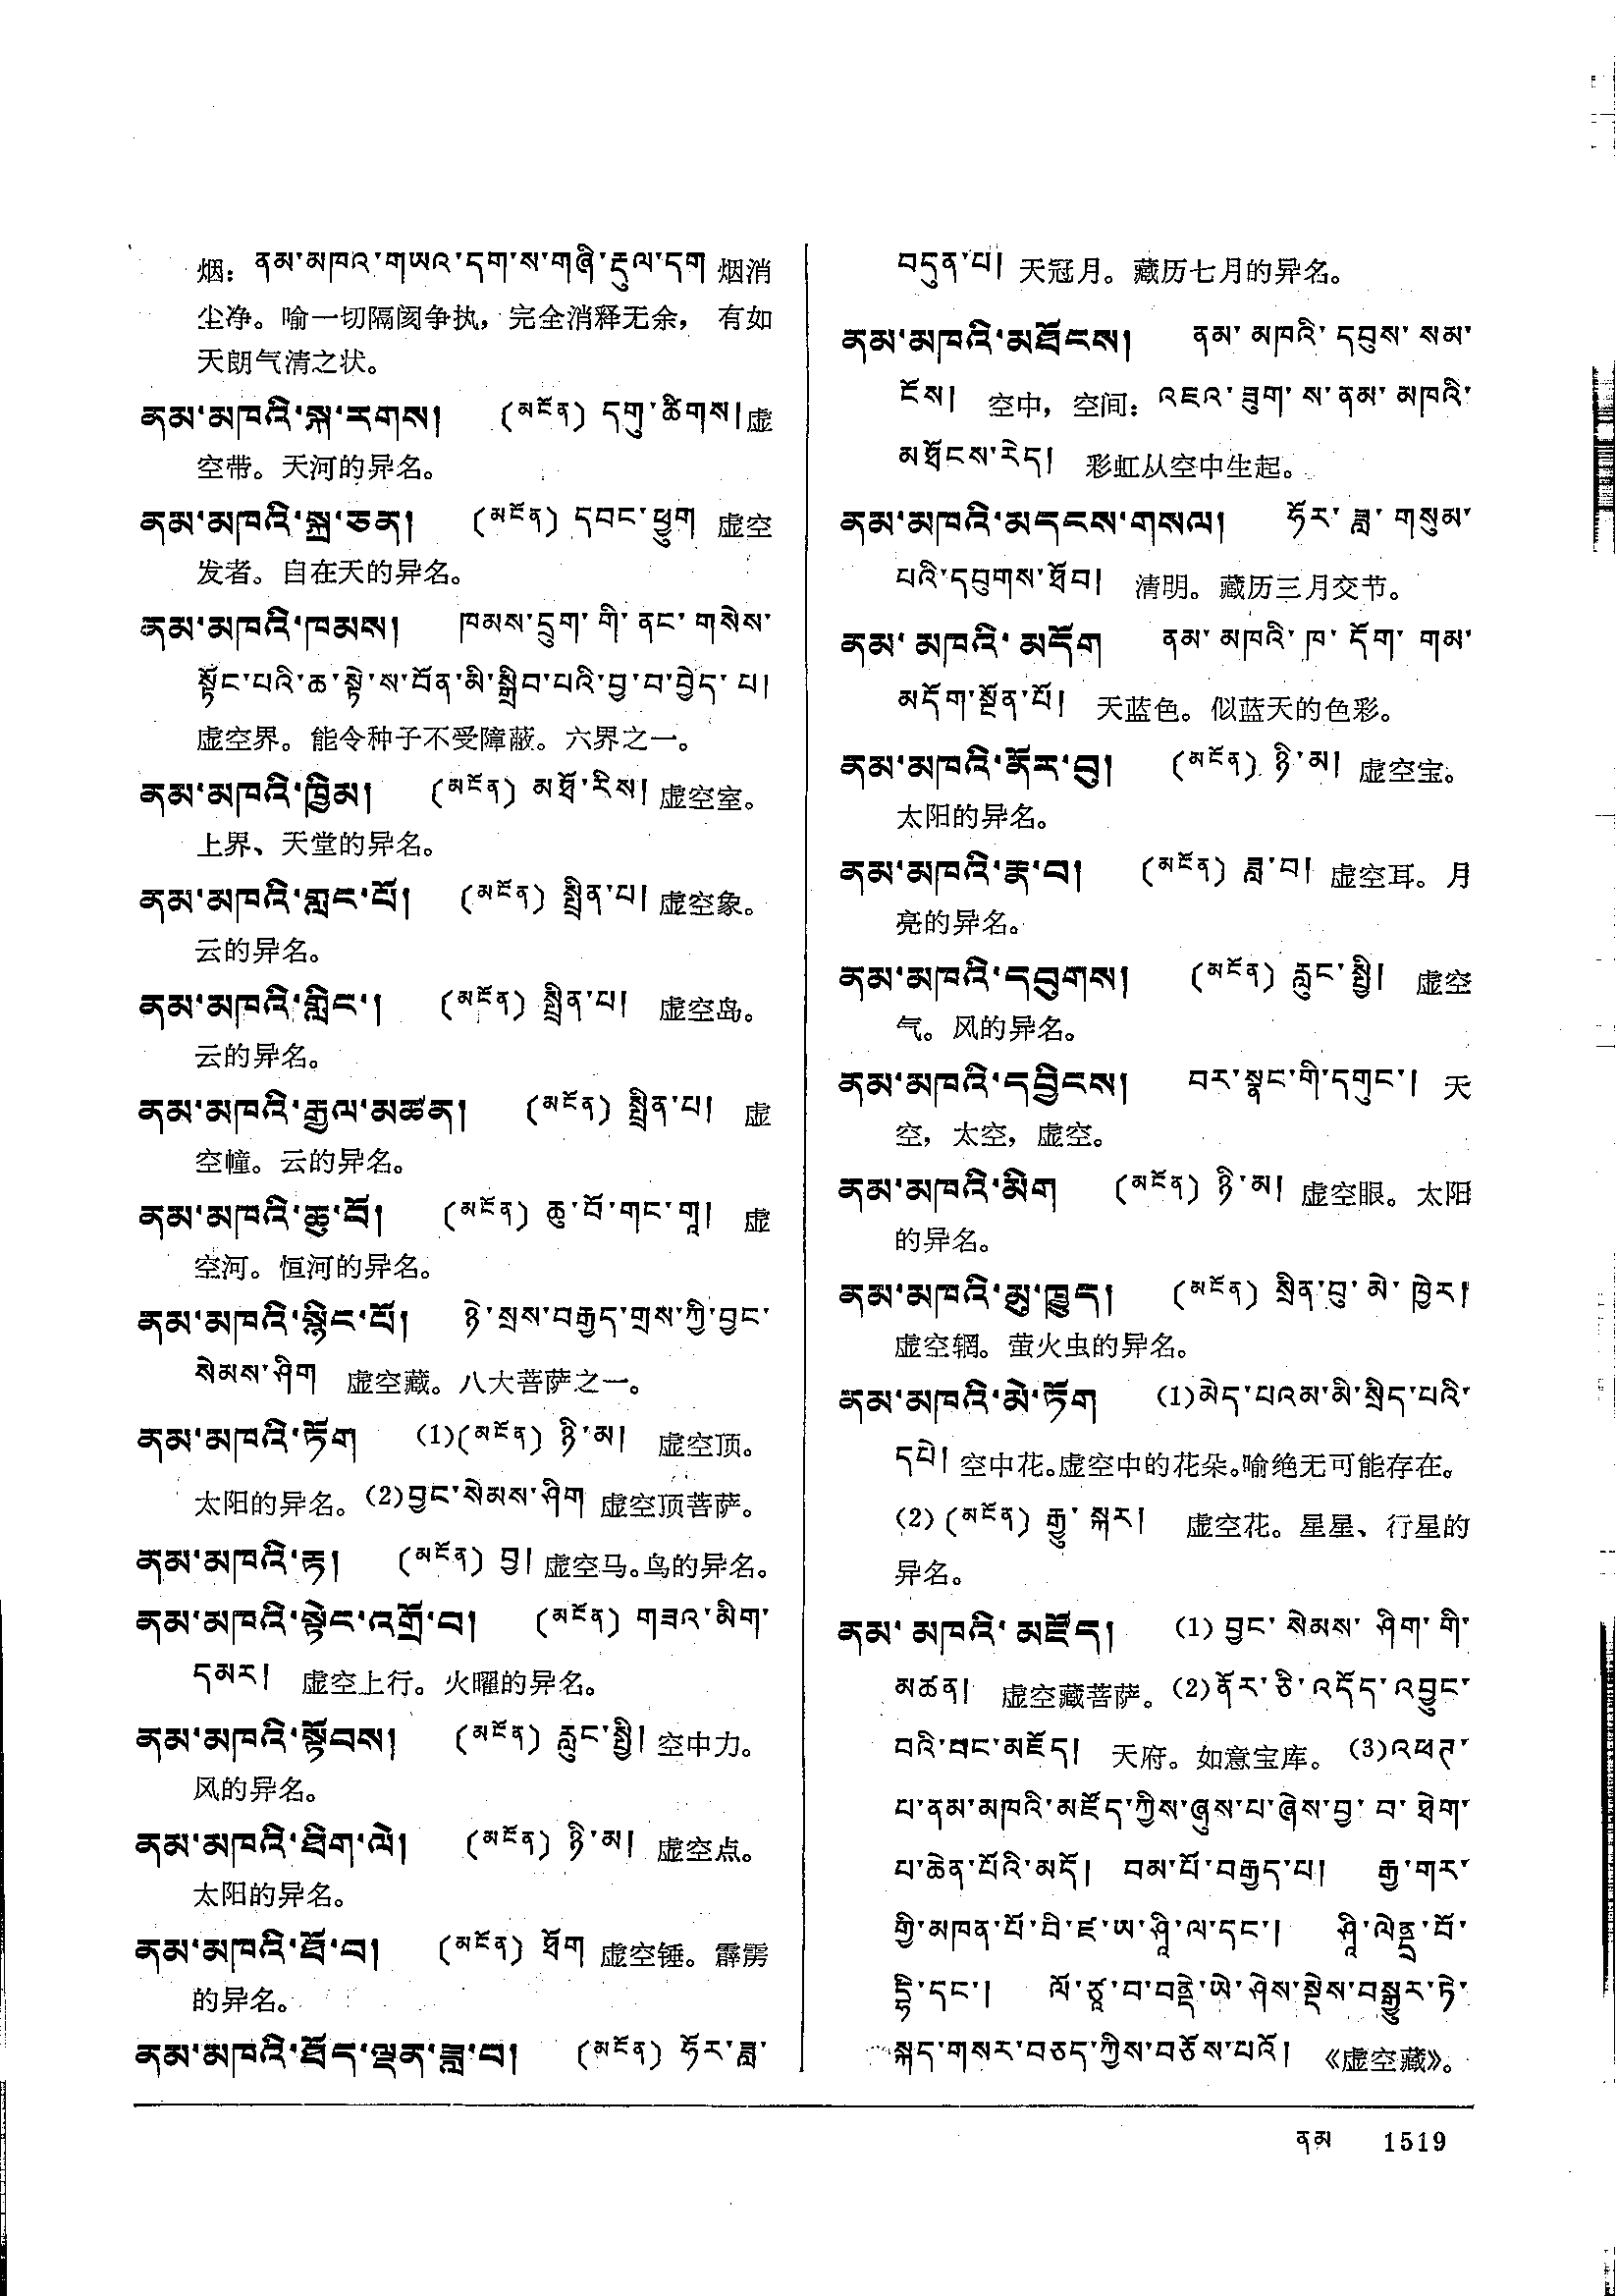 烟：ནམ་མཁའ་གཡའ་དག་ས་གཞི་རྡུལ་དག 烟消
尘净。喻一切隔阂争执，完全消释无余，有如
天朗气清之状。
ནམ་མཁའི་སྐ་རགས། (མངོན) དགུ་ཚིགས། 虚
空带。天河的异名。
ནམ་མཁའི་སྐྲ་ཅན། (མངོན) དབང་ཕྱུག 虚空
发者。自在天的异名。
ནམ་མཁའི་ཁམས། ཁམས་དྲུག་གི་ནང་གསེས་
སྟོང་པའི་ཆ་སྟེ་ས་བོན་མི་སྒྲིབ་པའི་བྱ་བ་བྱེད་པ།
虚空界。能令种子不受障蔽。六界之一。
ནམ་མཁའི་ཁྱིམ། (མངོན) མཐོ་རིས། 虚空室。
上界、天堂的异名。
ནམ་མཁའི་གླང་པོ། (མངོན) སྤྲིན་པ། 虚空象。
云的异名。
ནམ་མཁའི་གླིང་། (མངོན) སྤྲིན་པ། 虚空岛。
云的异名。
ནམ་མཁའི་རྒྱལ་མཚན། (མངོན) སྤྲིན་པ། 虚
空幢。云的异名。
ནམ་མཁའི་ཆུ་བོ། (མངོན) ཆུ་བོ་གང་གཱ། 虚
空河。恒河的异名。
ནམ་མཁའི་སྙིང་པོ། ཉེ་སྲས་བརྒྱད་གྲས་ཀྱི་བྱང་
སེམས་ཤིག 虚空藏。八大菩萨之一。
ནམ་མཁའི་ཏོག (1)(མངོན) ཉི་མ། 虚空顶。
太阳的异名。(2)བྱང་སེམས་ཤིག 虚空顶菩萨。
ནམ་མཁའི་རྟ། (མངོན) བྱ། 虚空马。鸟的异名。
ནམ་མཁའི་སྟེང་འགྲོ་བ། (མངོན) གཟའ་མིག་
དམར། 虚空上行。火曜的异名。
ནམ་མཁའི་སྟོབས། (མངོན) རླུང་སྤྱི། 空中力。
风的异名。
ནམ་མཁའི་ཐིག་ལེ། (མངོན) ཉི་མ། 虚空点。
太阳的异名。
ནམ་མཁའི་ཐོ་བ། (མངོན) ཐོག 虚空锤。霹雳
的异名。
ནམ་མཁའི་ཐོད་ལྡན་ཟླ་བ། (མངོན) ཧོར་ཟླ་
བདུན་པ། 天冠月。藏历七月的异名。
ནམ་མཁའི་མཐོངས། ནམ་མཁའི་དབུས་སམ་
ངོས། 空中，空间：འཇའ་ཟུག་ས་ནམ་མཁའི་
མཐོངས་རེད། 彩虹从空中生起。
ནམ་མཁའི་མདངས་གསལ། ཧོར་ཟླ་གསུམ་
པའི་དབུགས་ཐོབ། 清明。藏历三月交节。
ནམ་མཁའི་མདོག ནམ་མཁའི་ཁ་དོག་གམ་
མདོག་སྔོན་པོ། 天蓝色。似蓝天的色彩。
ནམ་མཁའི་ནོར་བུ། (མངོན) ཉི་མ། 虚空宝。
太阳的异名。
ནམ་མཁའི་རྣ་བ། (མངོན) ཟླ་བ། 虚空耳。月
亮的异名。
ནམ་མཁའི་དབུགས། (མངོན) རླུང་སྤྱི། 虚空
气。风的异名。
ནམ་མཁའི་དབྱིངས། བར་སྣང་གི་དགུང་། 天
空，太空，虚空。
ནམ་མཁའི་མིག (མངོན) ཉི་མ། 虚空眼。太阳
的异名。
ནམ་མཁའི་མུ་ཁྱུད། (མངོན) སྲིན་བུ་མེ་ཁྱེར།
虚空辋。萤火虫的异名。
ནམ་མཁའི་མེ་ཏོག (1)མེད་པའམ་མི་སྲིད་པའི་
དཔེ། 空中花。虚空中的花朵。喻绝无可能存在。
(2)(མངོན) རྒྱུ་སྐར། 虚空花。星星、行星的
异名。
ནམ་མཁའི་མཛོད། (1) བྱང་སེམས་ཤིག་གི་
མཚན། 虚空藏菩萨。(2)ནོར་ཅི་འདོད་འབྱུང་
བའི་བང་མཛོད། 天府。如意宝库。(3)འཕཊ་
པ་ནམ་མཁའི་མཛོད་ཀྱིས་ཞུས་པ་ཞེས་བྱ་བ་ཐེག་
པ་ཆེན་པོའི་མདོ། བམ་པོ་བརྒྱད་པ། རྒྱ་གར་
གྱི་མཁན་པོ་བི་ཛ་ཡ་ཤཱི་ལ་དང་། ཤཱི་ལེནྡྲ་བོ་
དྷི་དང་། ལོ་ཙཱ་བ་བནྡེ་ཡེ་ཤེས་སྡེས་བསྒྱུར་ཏེ་
སྐད་གསར་བཅད་ཀྱིས་བཅོས་པའོ། 《虚空藏》。
ནམ 1519